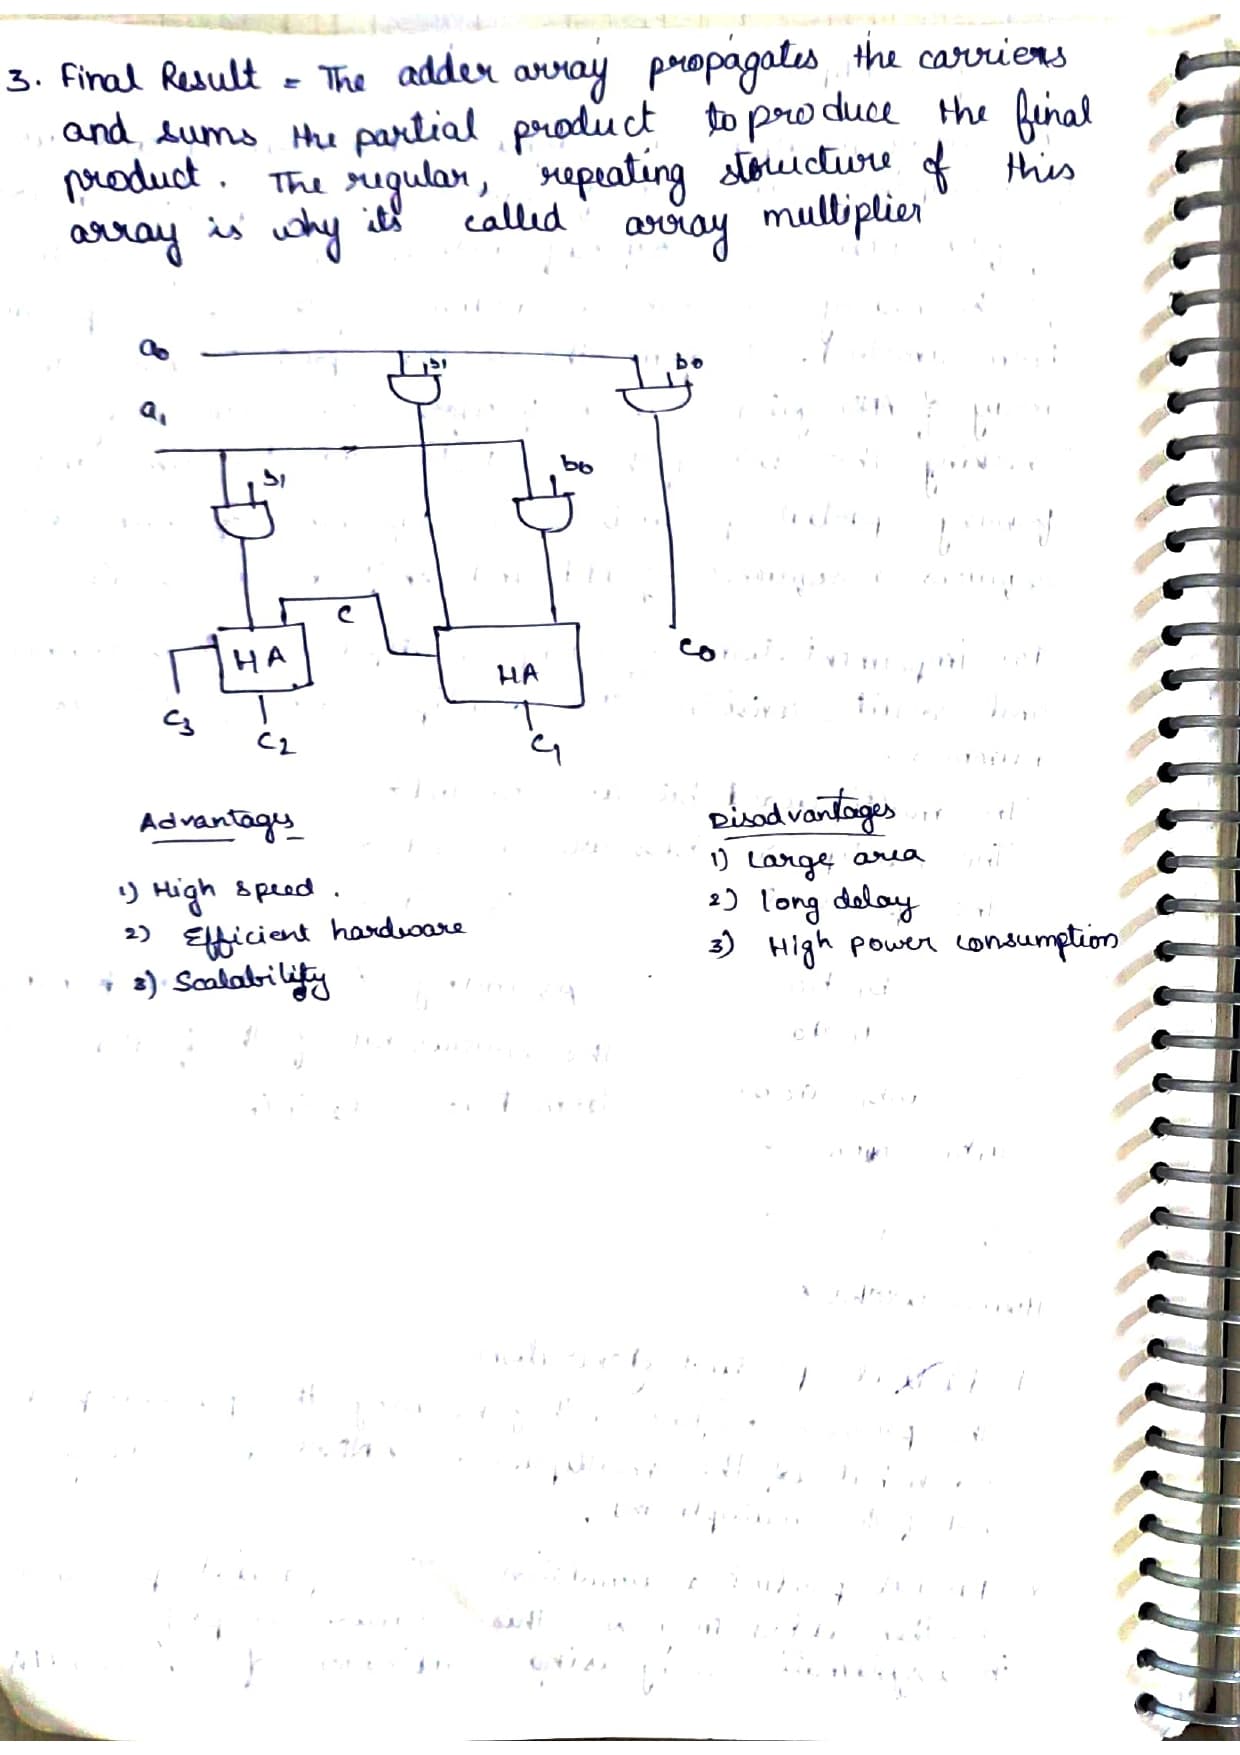 3. Final Result = The adder array propagates the carriers
and sums the partial product to produce the final
product. The regular, repeating structure of this
array is why its called array multiplier
a0
b1
b0
a1
b1
b0
C
HA
HA
C0
C3
C2
C1
Advantages
1) High speed.
2) Efficient hardware
3) Scalability
Disadvantages
1) Large area
2) long delay
3) High power consumption